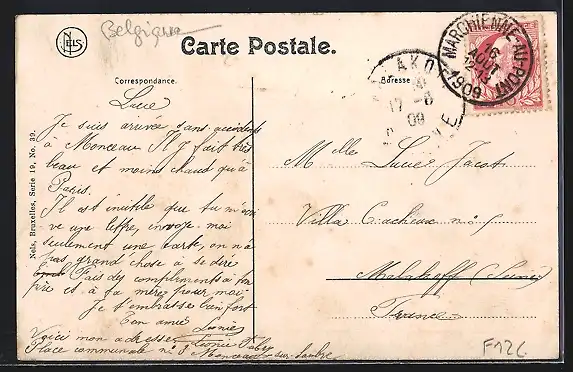 NELS
Belgique
Carte Postale.
Correspondance.
Adresse
MARCHIENNE-AU-PONT
16
AOUT
1909
AKO
17-8
09
Nels, Bruxelles, Serie 19, No. 39.
Lucie
Je suis arrivée sans accidents
à Monceau Il y fait très
beau et moins chaud qu'à
Paris.
Il est inutile que tu m'écri
ve une lettre, envoye moi
seulement une carte, on n'a
pas grand'chose à se dire
Fais des compliments à ton
père et à ta mère pour moi
Je t'embrasse bien fort
Ton amie
Léonie
Voici mon adresse Léonie Fabry
Place communale n° 8 Monceau-sur-Sambre
Melle Lucie Jacot
Villa Cacheux n°
Malakoff (Seine)
France
F126